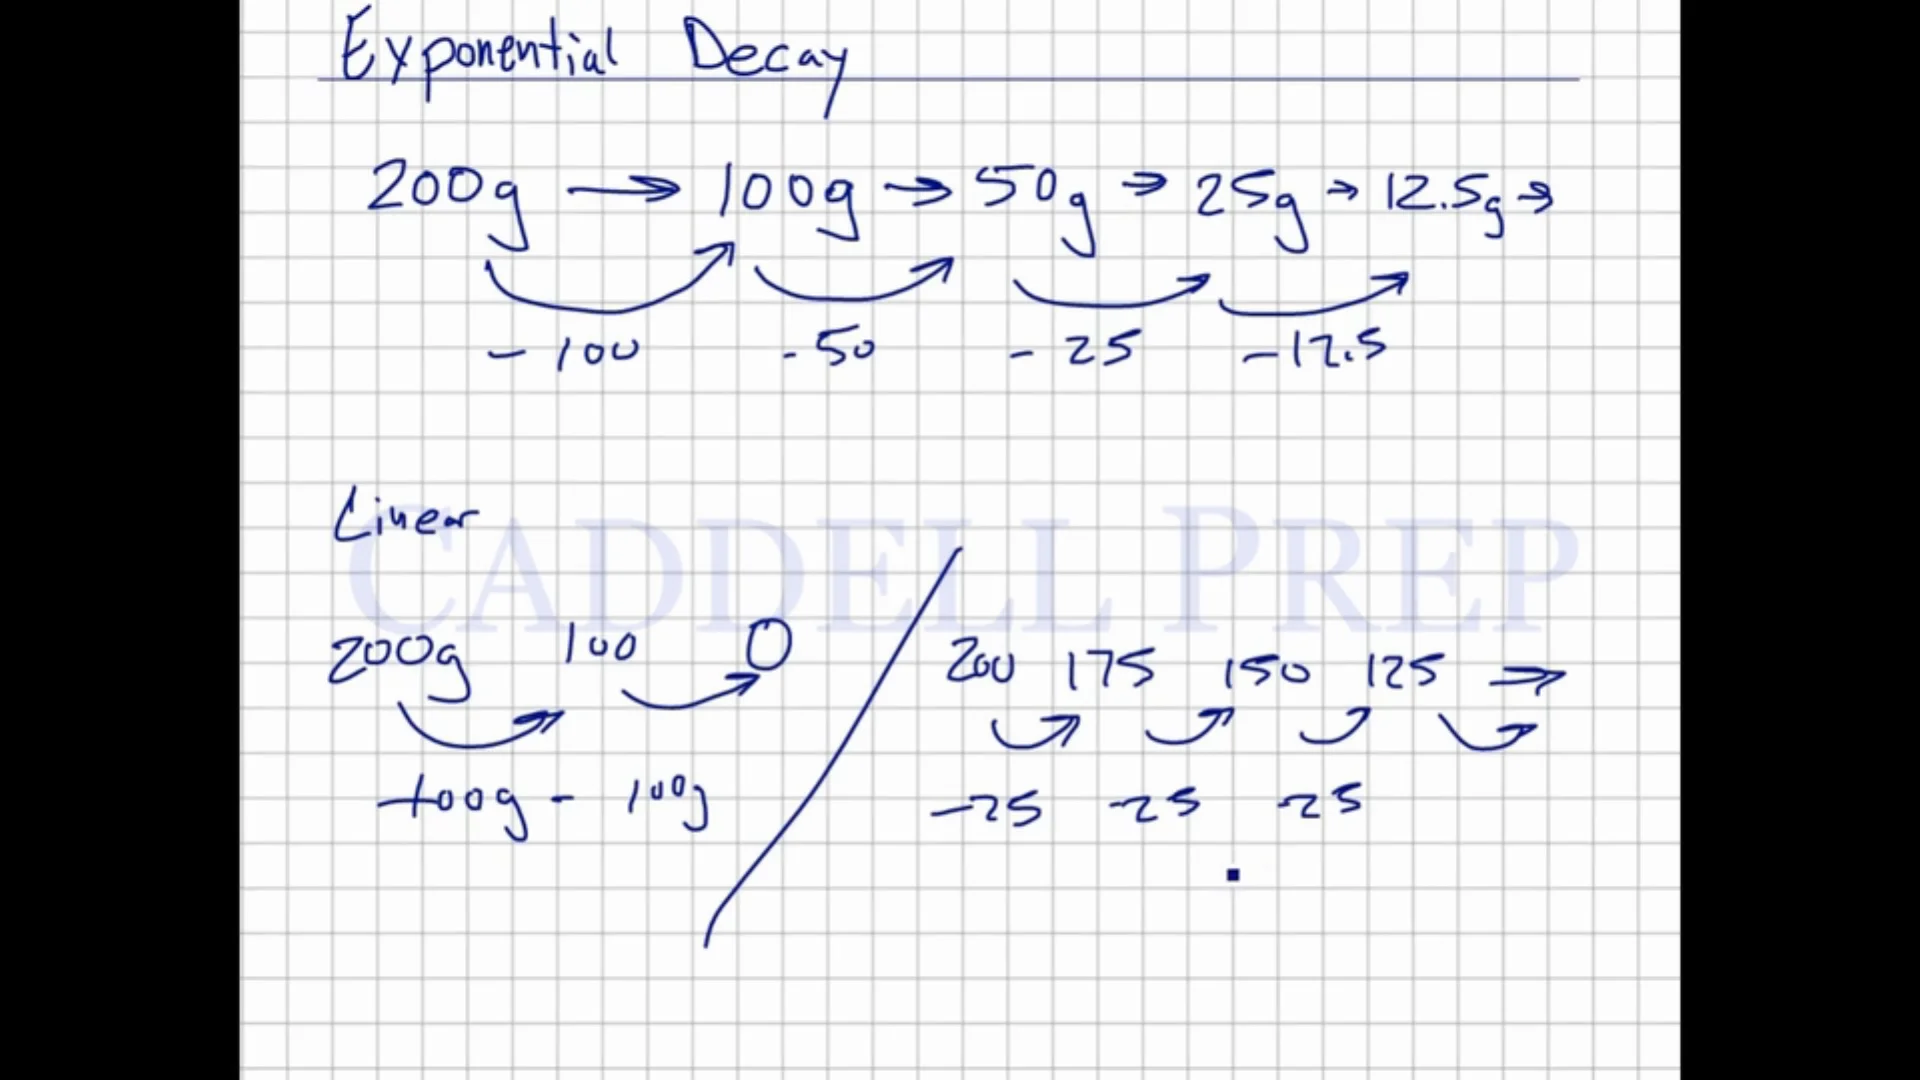 Exponential Decay
200g → 100g → 50g → 25g → 12.5g →
- 100 - 50 - 25 - 12.5
Linear
CADDELL PREP
200g 100 0
-100g - 100g
200 175 150 125 →
-25 -25 -25